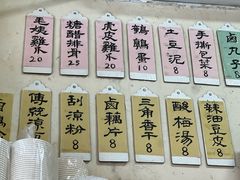 毛姨雞爪 20
糖醋排骨 25
虎皮雞爪 20
鵪鶉蛋 10
土豆泥 8
手撕包菜 8
卤丸子 8
傳統涼
刮凉粉 8
卤藕片 8
三角香干 8
酸梅湯 8
辣油豆皮 8